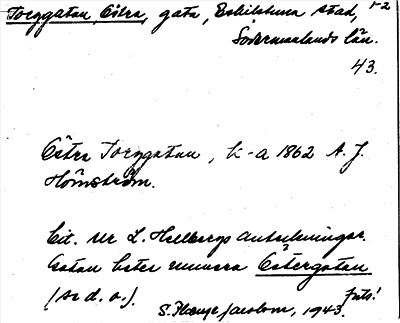 Torggatan, Östra, gata, Eskilstuna stad, 1-2
Södermanlands län.
43.
Östra Torggatan, k-a 1862 A. J.
Hömström.
Cit. ur L. Hellbergs anteckningar.
Gatan heter numera Östergatan
(se d. o.). forts!
S. Jacobson, 1943.